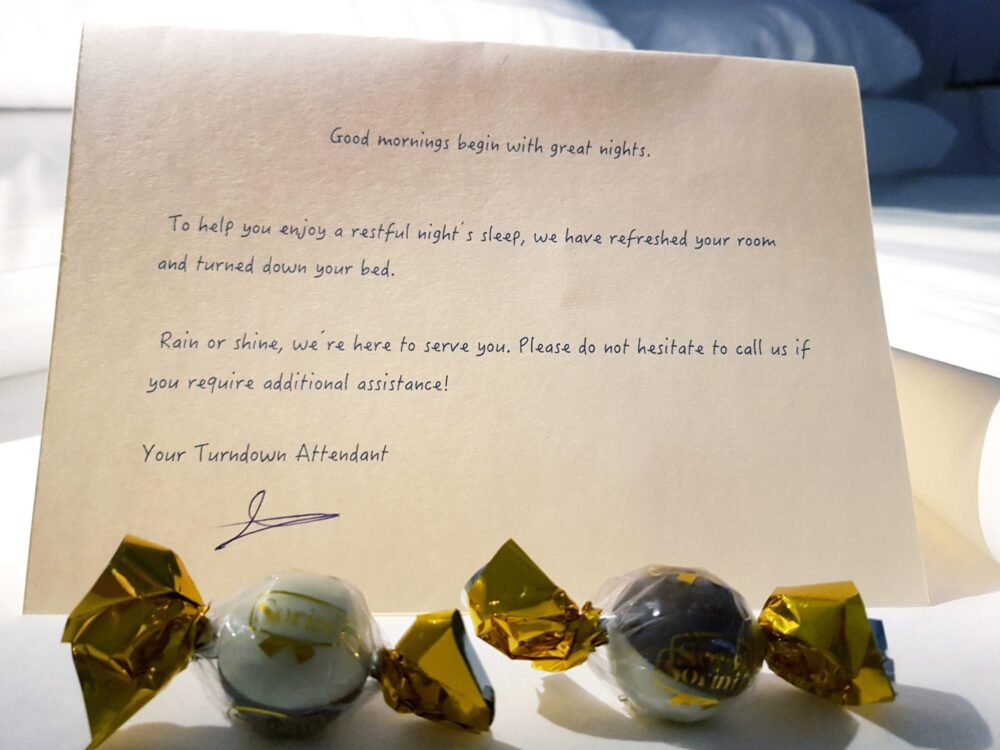 Good mornings begin with great nights.
To help you enjoy a restful night's sleep, we have refreshed your room
and turned down your bed.
Rain or shine, we're here to serve you. Please do not hesitate to call us if
you require additional assistance!
Your Turndown Attendant
Sorini
Sorini